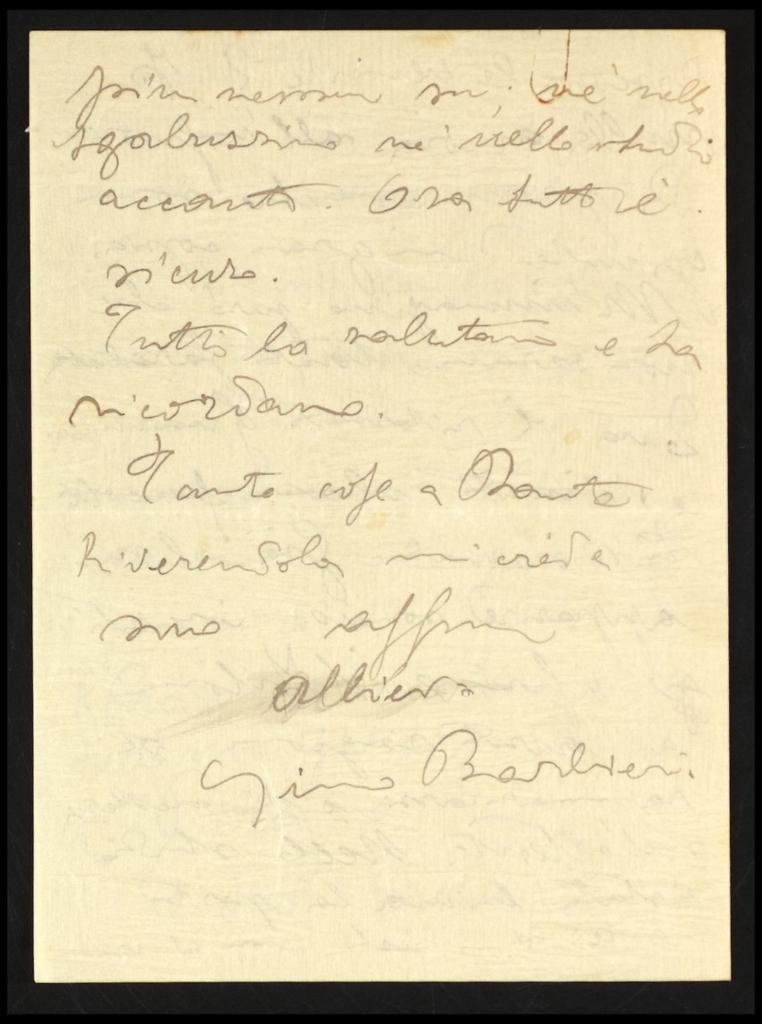 più nessuno su. nè nello
sgabuzzino nè nello studio
accanto. Ora tutto è
sicuro.
Tutti la salutano e la
ricordano.
Tante cose a
Riverendola mi creda
suo affmo
allievo
Gino Barbieri